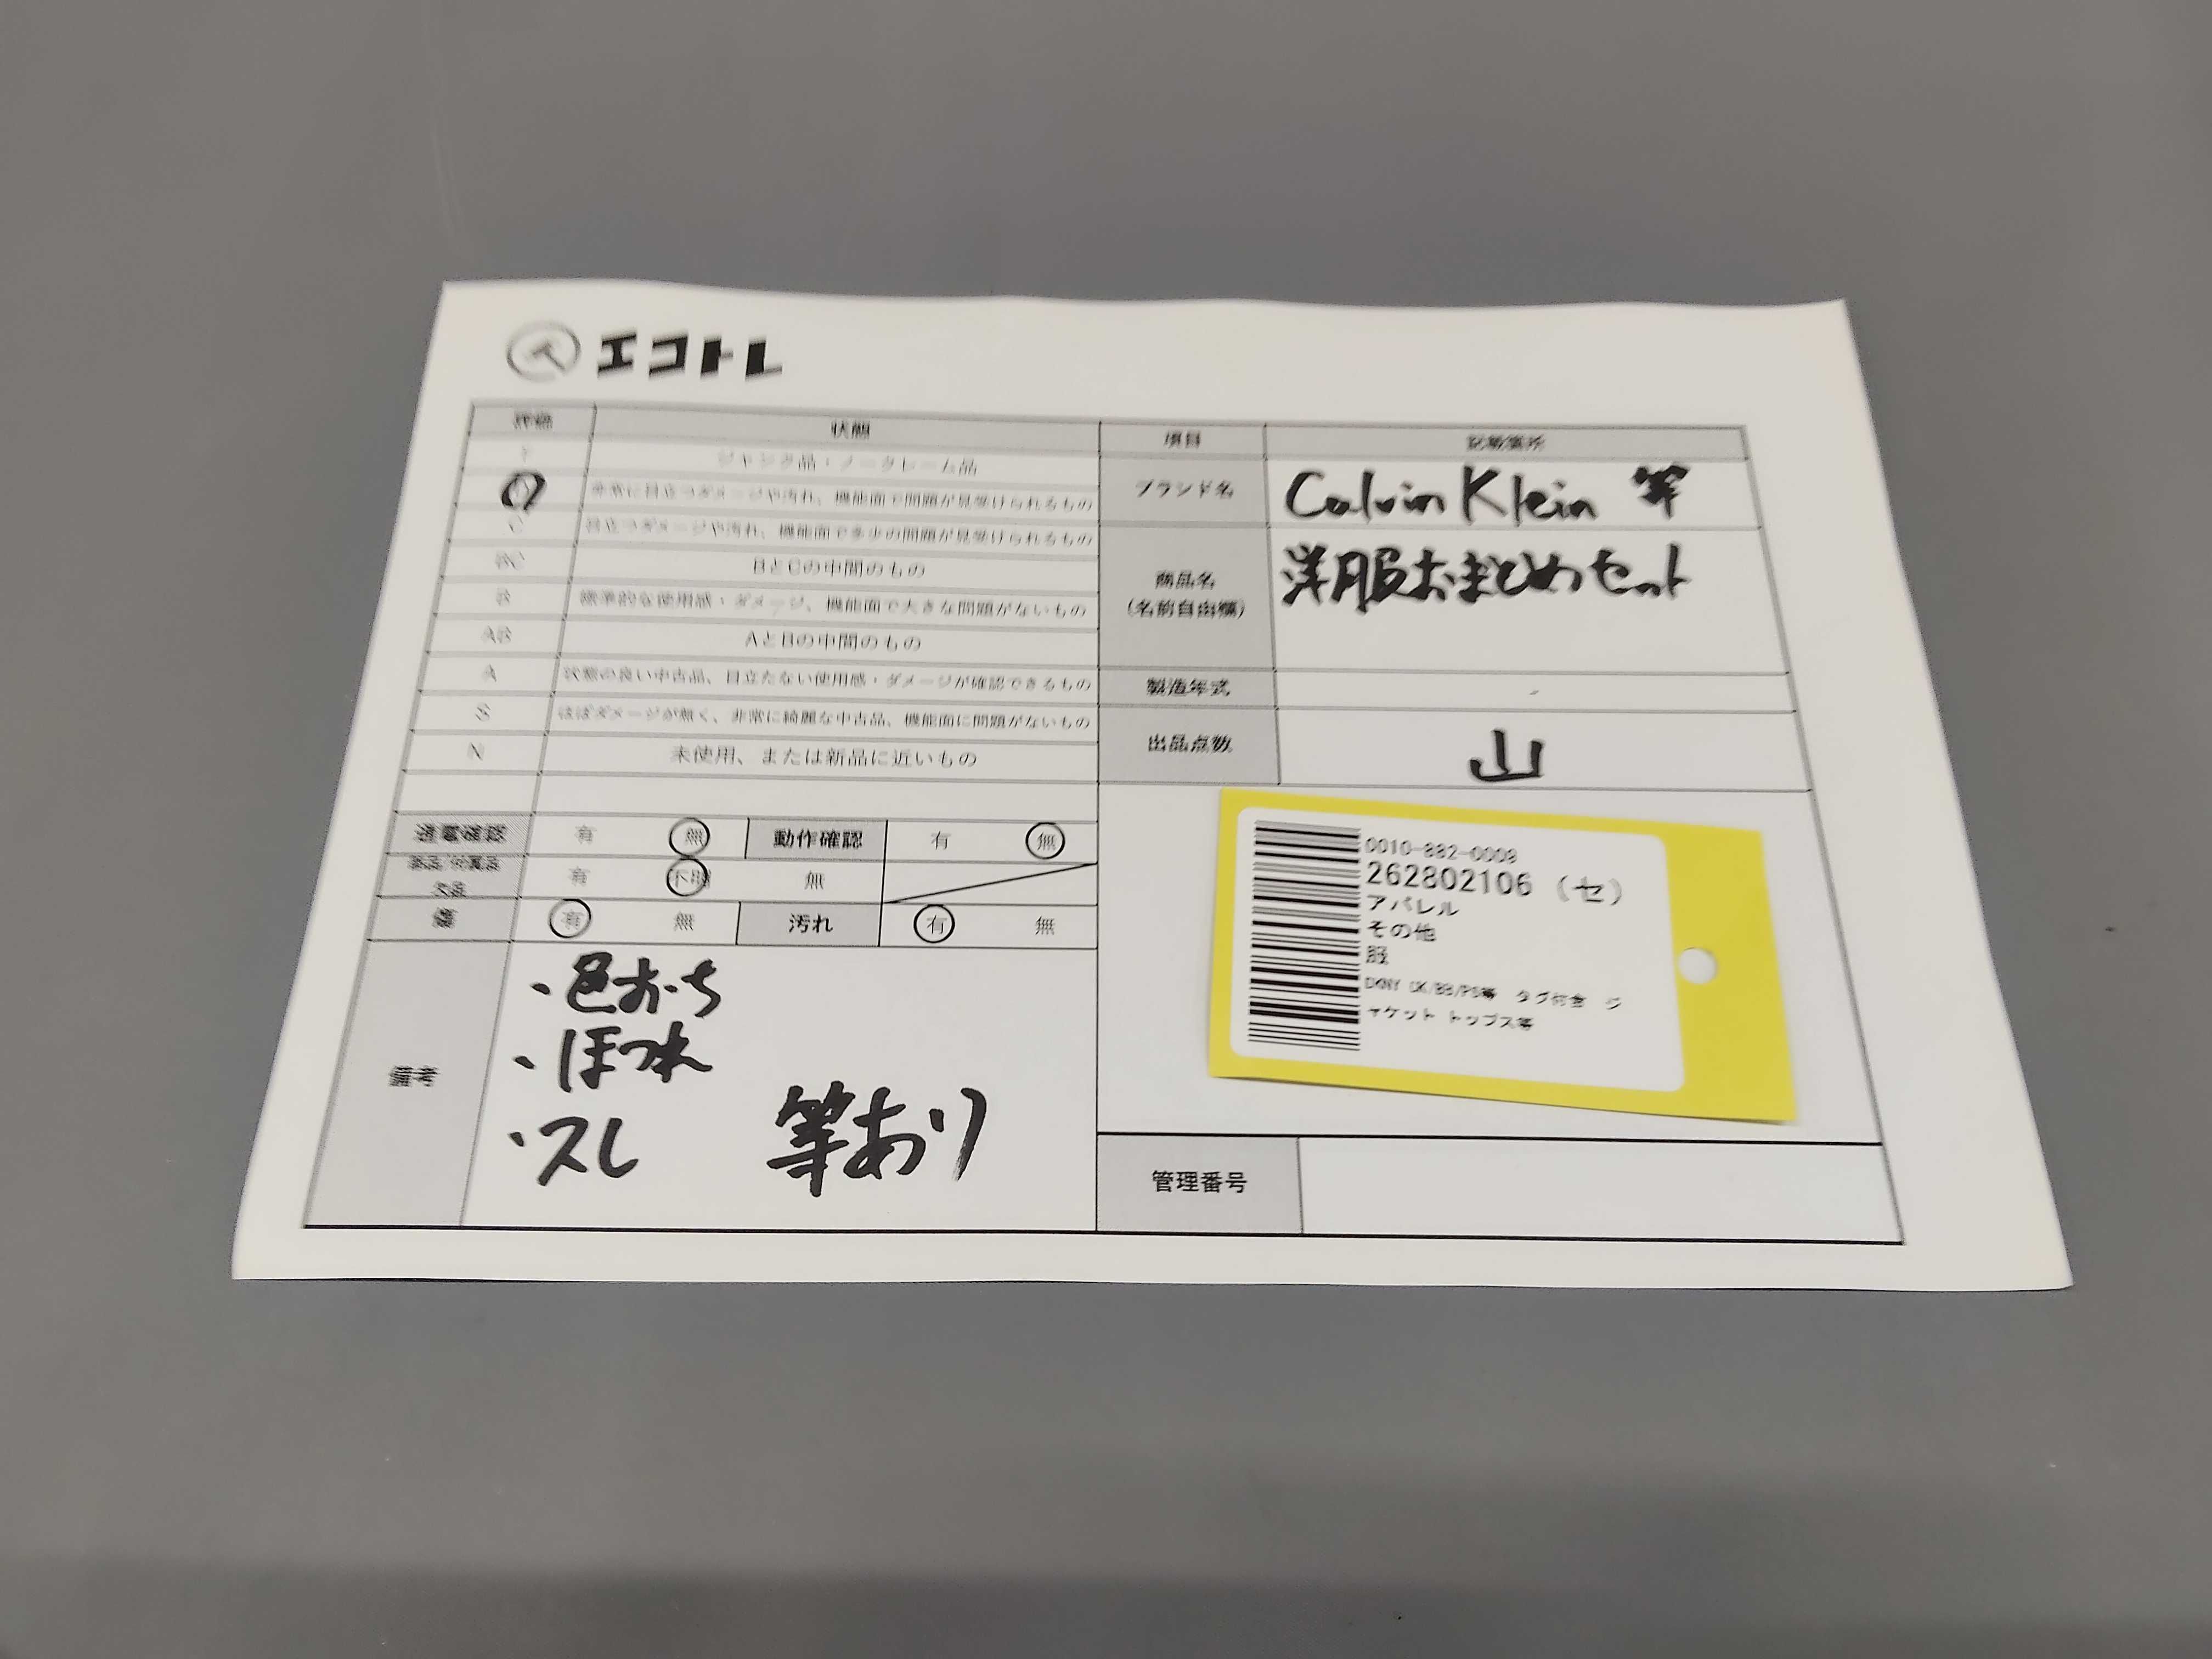 エコトレ
評価 状態 項目 記載箇所
ジャンク品・ノークレーム品
非常に目立つダメージや汚れ、機能面で問題が見受けられるもの
C 目立つダメージや汚れ、機能面で多少の問題が見受けられるもの
BC BとCの中間のもの
B 標準的な使用感・ダメージ、機能面で大きな問題がないもの
AB AとBの中間のもの
A 状態の良い中古品、目立たない使用感・ダメージが確認できるもの
S ほぼダメージが無く、非常に綺麗な中古品、機能面に問題がないもの
N 未使用、または新品に近いもの
ブランド名 Calvin Klein 等
商品名
(名前自由欄)
洋服おまとめセット
製造年式 -
出品点数 山
通電確認 有 無 動作確認 有 無
部品/付属品
欠品
有 不明 無
傷 有 無 汚れ 有 無
備考
・色おち
・ほつれ
・スレ 等あり
0010-882-0009
262802106 (セ)
アパレル
その他
服
DKNY CK/BB/PS等 タグ付含 ジ
ャケット トップス等
管理番号